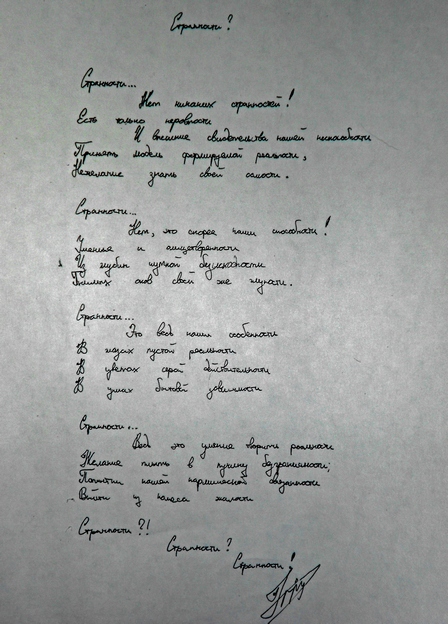 Странности?
Странности...
Нет никаких странностей!
Есть только неровности
И внешние свидетельства нашей неспособности
Принять модель формируемой реальности,
Нежелание знать своей самости.
Странности...
Нет, это скорее наши способности!
Умения и
Из глубин шумной безысходности
оков своей же глупости.
Странности...
Это ведь наши особенности
В глазах пустой реальности
В цветах серой действительности
В умах бытовой зависимости
Странности...
Ведь это умение творить реальность
Желание плыть в пучину безграничности;
Попытки нашей кармической связанности
Выйти из колеса жалости
Странности?!
Странности?
Странности!